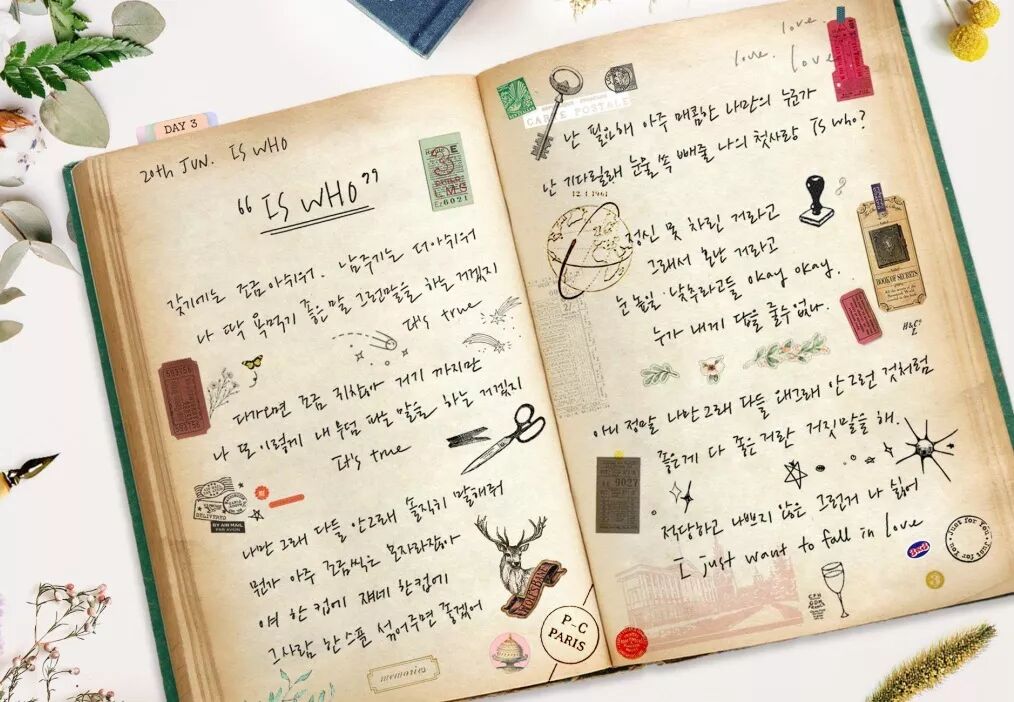 DAY 3
20th JUN. IS WHO
“IS WHO”
갖기에는 조금 아쉬워. 남주기는 더 아쉬워
나 딱 욕먹기 좋은 말 그런말을 하는 거겠지
It's true
다가오면 조금 귀찮아 거기 까지만
나 또 이렇게 내 무덤 파는 말을 하는 거겠지
It's true
나만 그래 다들 안그래 솔직히 말해줘
뭔가 아주 조금씩은 모자라잖아
얘 한 컵에 쟤네 한컵에
그사람 한 스푼 섞어주면 좋겠어
DELIVERED
BY AIR MAIL
PAR AVION
P-C
PARIS
memories
love.
love. love
CARTE POSTALE
난 필요해 아주 매콤한 나만의 누군가
난 기다릴래 눈물 쏙 빼줄 나의 첫사랑 Is who?
12.4.1961
정신 못 차린 거라고
그래서 혼난 거라고
눈 높일. 낮추라고들 okay okay.
누가 내게 답을 줄수 없나.
BOOK OF SECRETS
H&C?
아니 정말 나만 그래 다들 왜그래 안 그런 것처럼
좋은게 다 좋은거란 거짓말을 해.
적당하고 나쁘지 않은 그런거 나 싫어
I just want to fall in love
9027
Just for You
Just for You
3
593756
593756
3
Ez6021